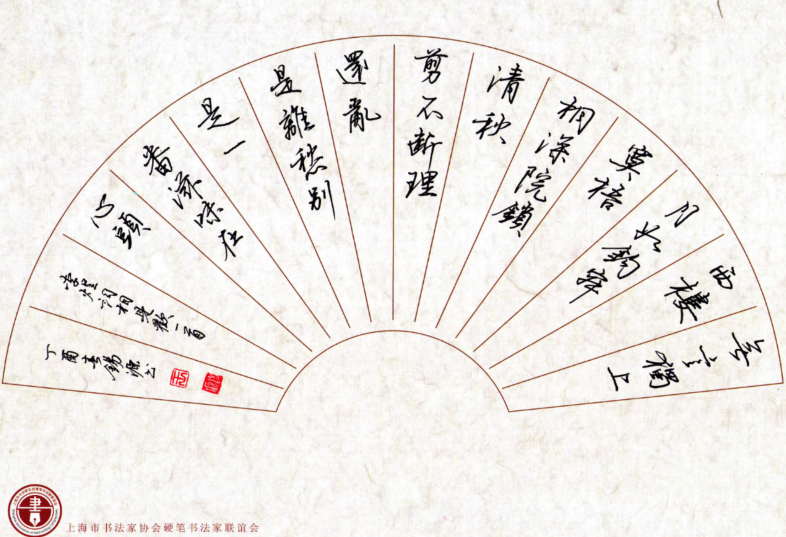 无言獨上
西樓
月如鈎寂
寞梧
桐深院鎖
清秋
剪不断理
還亂
是離愁别
是一
番滋味在
心頭
李煜词相見歡一首
丁酉春錫源书
上海市书法家协会硬笔书法家联谊会